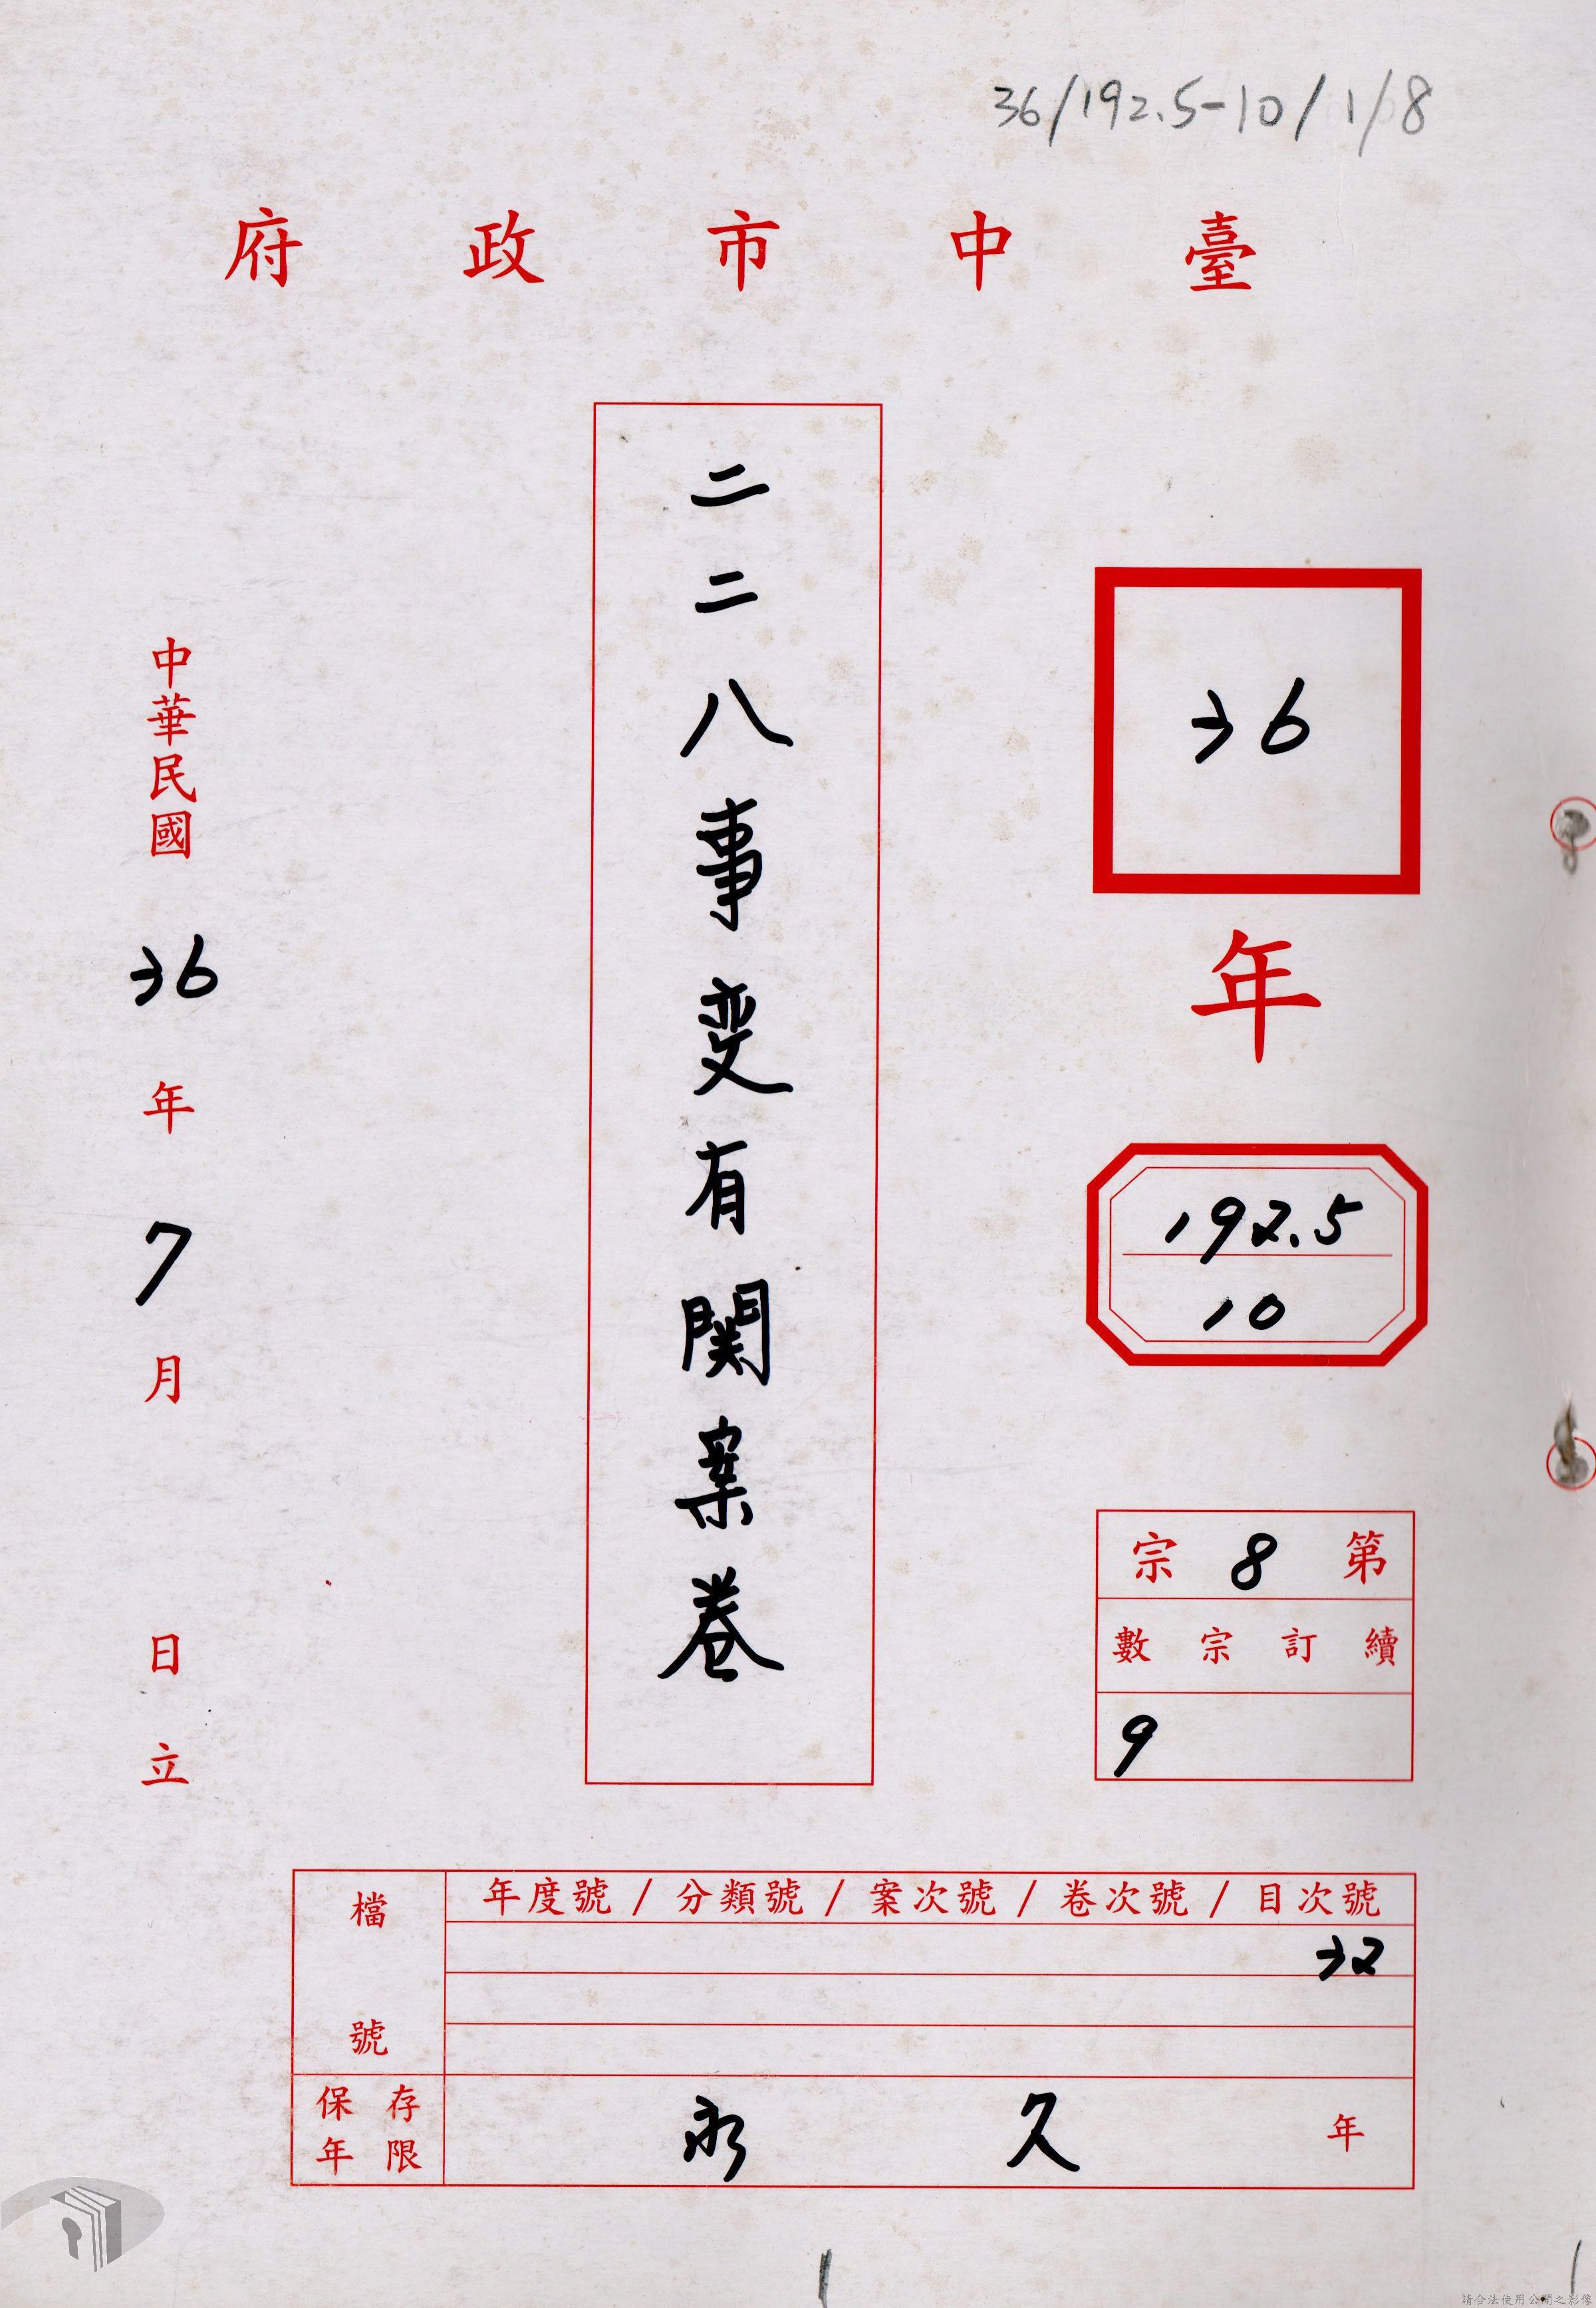 36/192.5-10/1/8
臺中市政府
36
年
192.5
10
第8宗
續訂宗數
9
二二八事変有関案卷
中華民國36年7月 日立
檔號
年度號/分類號/案次號/卷次號/目次號
32
保存年限
永久年
請合法使用公開之影像